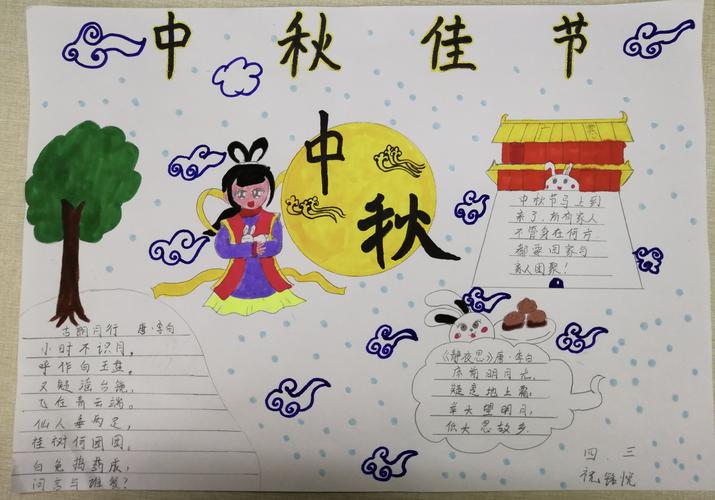 中秋佳节
中
秋
广寒
中秋节马上到
来了,所有家人
不管身在何方
都要回家与
家人团聚!
古朗月行 唐·李白
小时不识月,
呼作白玉盘。
又疑瑶台镜,
飞在青云端。
仙人垂两足,
桂树何团团。
白兔捣药成,
问言与谁餐?
《静夜思》唐·李白
床前明月光,
疑是地上霜,
举头望明月,
低头思故乡。
四.三